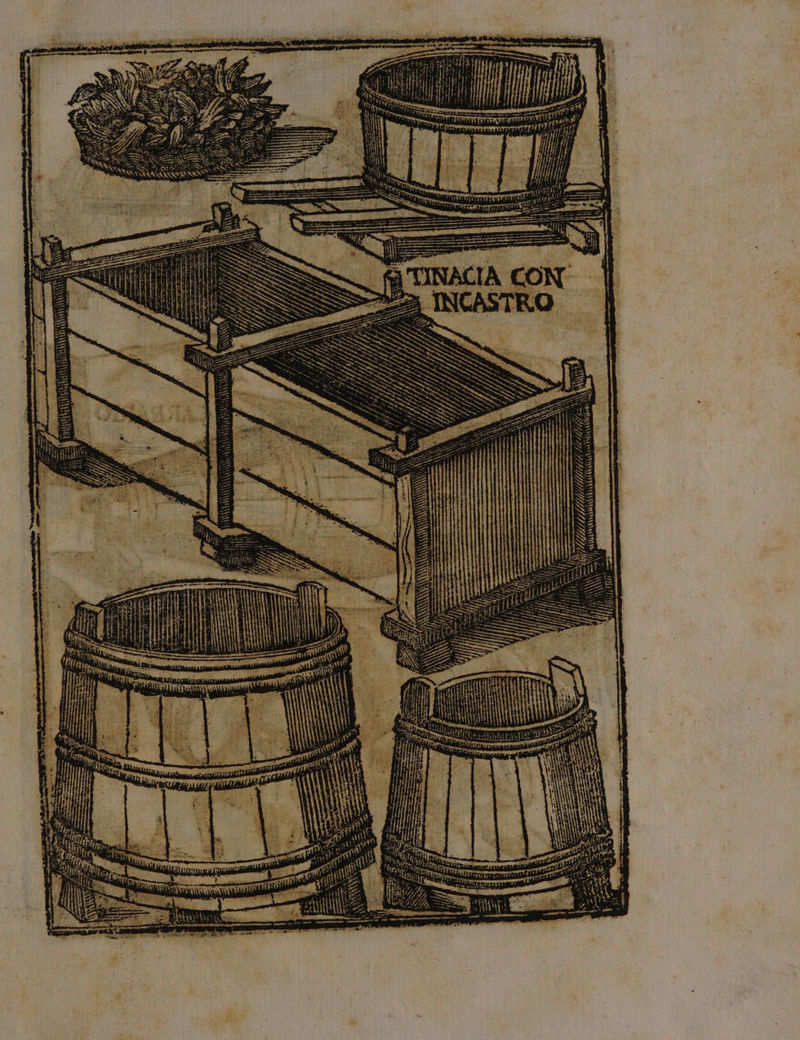 TINACIA CON
INCASTRO